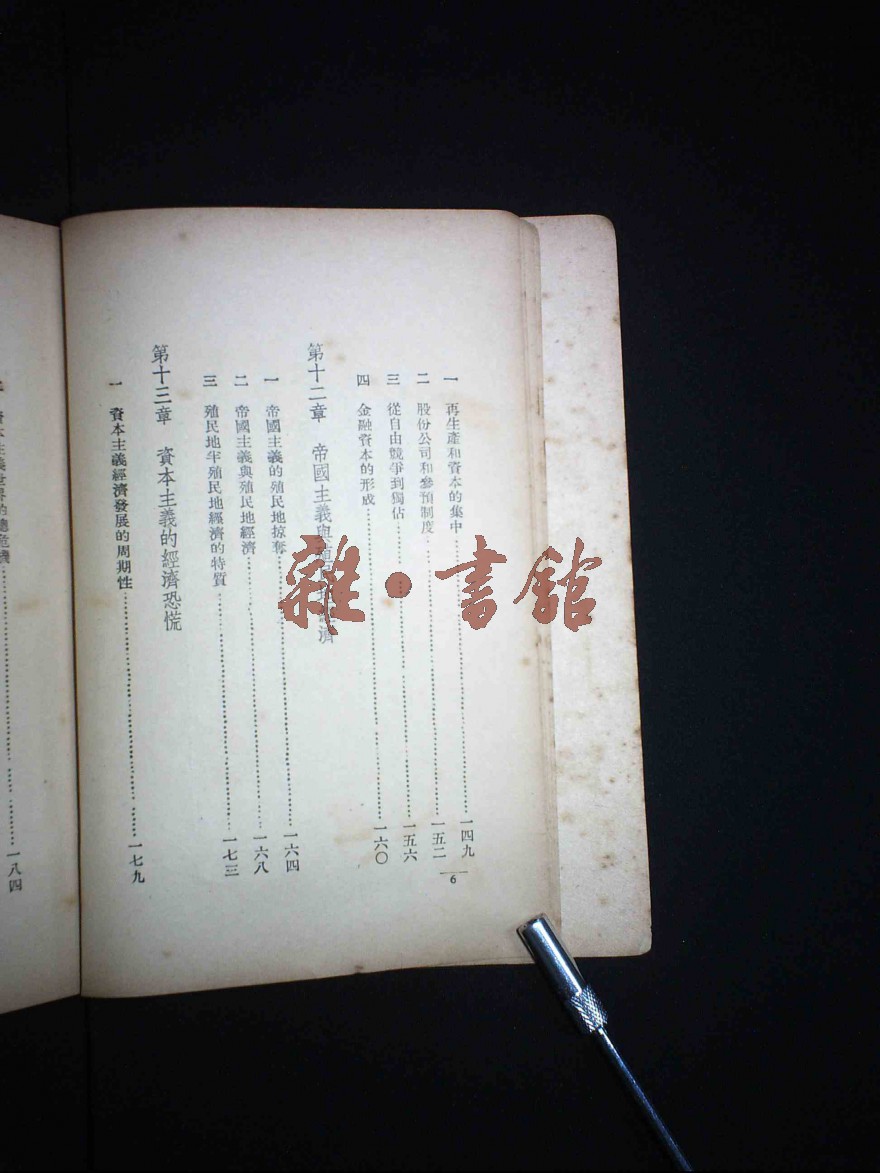 一　再生產和資本的集中……一四九
二　股份公司和參預制度……一五二
三　從自由競爭到獨佔……一五六
四　金融資本的形成……一六〇
第十二章　帝國主義與殖民地經濟
一　帝國主義的殖民地掠奪……一六四
二　帝國主義與殖民地經濟……一六八
三　殖民地半殖民地經濟的特質……一七三
第十三章　資本主義的經濟恐慌
一　資本主義經濟發展的周期性……一七九
二　資本主義世界的總危機……一八四
6
雜·書舘